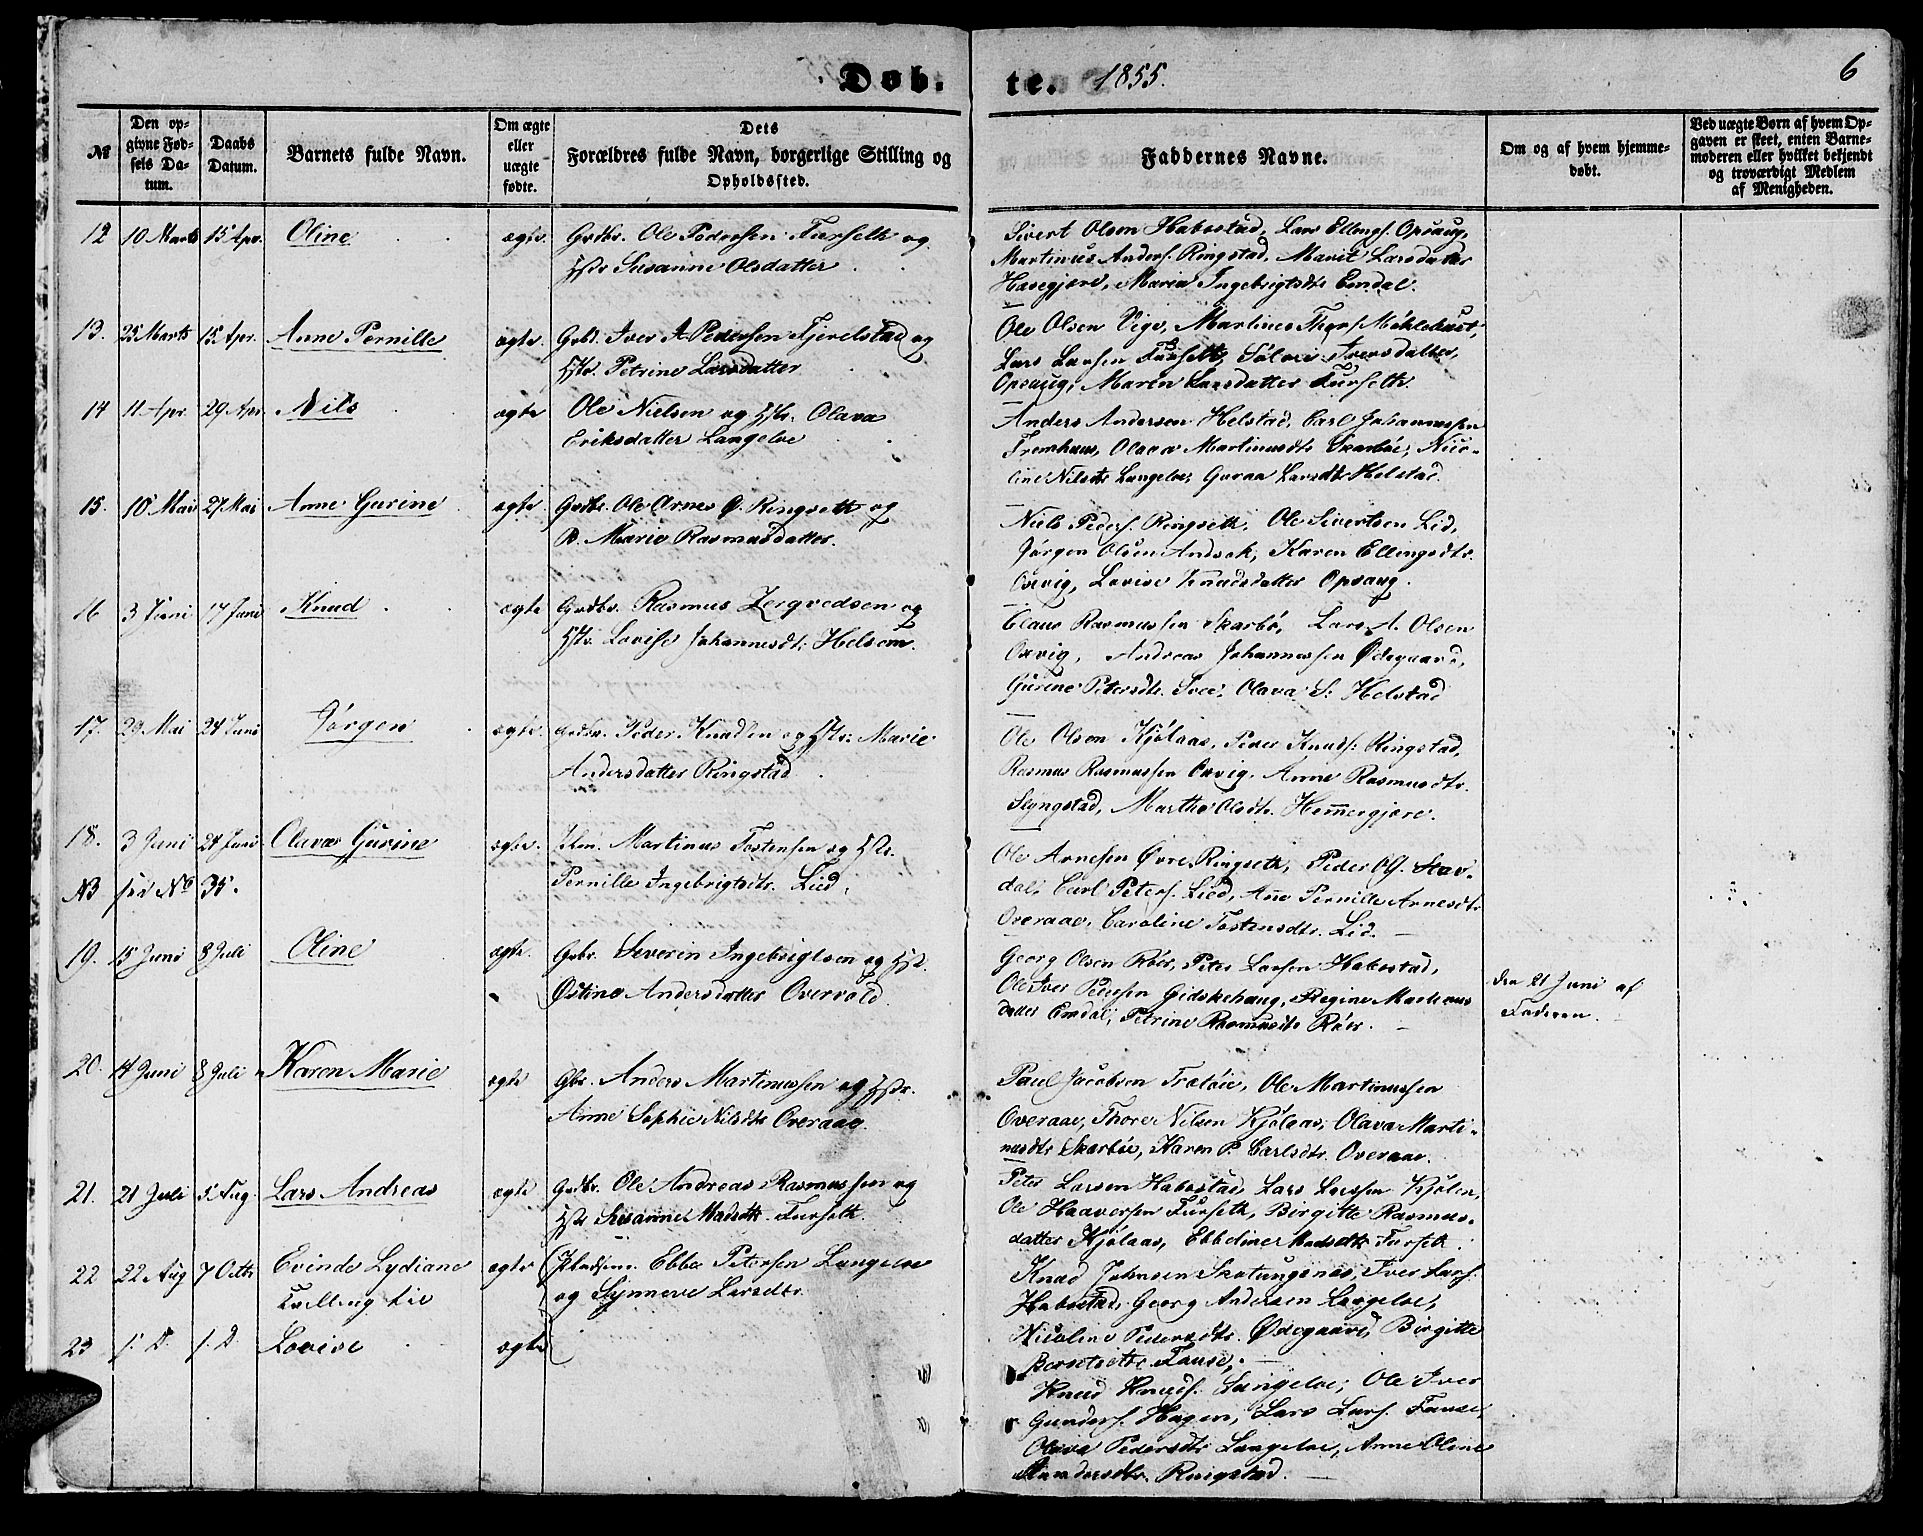 Døb-
te. 1855.
6
№
Den op-
givne Fød-
sels Da-
tum.
Daabs
Datum.
Barnets fulde Navn.
Om ægte
eller
uægte
fødte.
Dets
Forældres fulde Navn, borgerlige Stilling og
Opholdssted.
Faddernes Navne.
Om og af hvem hjemme-
døbt.
Ved uægte Børn af hvem Op-
gaven er skeet, enten Barne-
moderen eller hvilket bekjendt
og troværdigt Medlem
af Menigheden.
12 10 Marts 15 Apr. Oline ægte. Grdbr. Ole Pedersen Furseth og
Hstr Susanne Olsdatter
Sivert Olsen Habostad, Lars Ellengs. Opsaug,
Martinus Anders. Ringstad, Marit Larsdatter
Havegjere, Maria Ingebrigtsdtr Emdal.
13. 25 Marts 15 Apr. Anne Pernille ægte. Grbr. Iver A Pedersen Fjerelstad og
Hstr. Petrine Larsdatter
Ole Olsen Vigs, Martines Thors.
Lars Larsen Furseth, Sølvei Iversdatter,
Opsaug, Maren Larsdatter Furseth.
14 11 Apr 29 Apr. Nils ægte Ole Nielsen og Hstr. Olava
Eriksdatter Langeloe
Anders Andersen Helstad, Carl Johannessen
Fremhaus, Olava Martinusdtr Skarbøe, Nico-
line Nilsdtr Langeloe, Guraa Larsdtr Helstad.
15. 10 Mai 27 Mai Anne Gurine ægte Grdbr. Ole Arnes Ø. Ringseth og
P. Marie Rasmusdatter.
Niels Peders. Ringseth, Ole Sivertsen Lid,
Jørgen Olsen Andsok, Karen Ellingsdtr.
Oxvig, Lovise Knudsdatter Opsaug.
16 3 Juni 17 Juni Knud ægte Grdbr. Rasmus Zergvedsen og
Hstr. Lovise Johannesdtr. Helsem.
Claus Rasmussen Skarbø, Lars A. Olsen
Oxvig, Andreas Johannessen Ødegaard,
Gurine Petersdtr. Svee, Olava S. Helstad
17. 29 Mai 24 Juni Jørgen ægte. Grdbr. Peder Knudsen og Hstr. Marie
Andersdatter Ringstad
Ole Olsen Kjølaas, Peder Knuds. Ringstad,
Rasmus Rasmussen Oxvig, Anne Rasmusdtr.
Slyngstad, Marthe Olsdtr. Hemmergjere.
18. 3 Juni 24 Juni Olava Gurine ægte. Martinus Tostensen og Hstr.
NB für No 35. Pernille Ingebrigtsdtr. Lied.
Ole Arnesen Øvre Ringseth, Peder Ols. Stav-
dal, Carl Peters. Lied, Ane Pernille Arnesdtr
Overaae, Caroline Tostensdtr. Lid.
19. 15 Juni 8 Juli Oline ægte. Grbr. Severin Ingebrigtsen og Hstr.
Østine Andersdatter Overvold.
Georg Olsen Røer, Peter Larsen Habostad,
Ole Iver Pedersen Gidskehaug, Regine Martinus
datter Emdal, Petrine Rasmusdtr Røer.
den 21 Juni af
Faderen.
20. 14 Juni 8 Juli Karen Marie ægte Gbr. Anders Martinussen og Hstr.
Anne Sophie Nilsdtr Overaae.
Paul Jacobsen Tratøie, Ole Martinussen
Overaae, Thore Nilsen Kjølaas, Olava Marti-
nusdtr Skarbøe, Karen P. Carlsdtr. Overaae.
21. 21 Juli 5 Aug. Lars Andreas ægte Grdbr. Ole Andreas Rasmussen og
Hstr Susanne Madsdtr. Furseth.
Peter Larsen Habostad, Lars Larssen Kjølen,
Ole Haaversen Furseth, Birgitte Rasmus-
datter Kjølaas, Ebbeline Madsdtr Furseth.
22 22 Aug 7 Octbr Evinde Lydiane ægte Pladsm. Ebbe Petersen Langeloe
Tvilling til og Synneve Larsdtr.
Knud Johnsen Skotungenes, Iver Lars.
Habostad, Georg Andersen Langeloe,
Nicoline Pedersdtr. Ødegaard, Birgitte
Berntsdtr. Fause.
23 s. D. s. D. Lovise ægte
Knud Knuds. Langeloe, Ole Iver
Gunders. Hagen, Lars Lars. Fause,
Olava Pedersdtr Langeloe, Anne Oline
Ringstad.